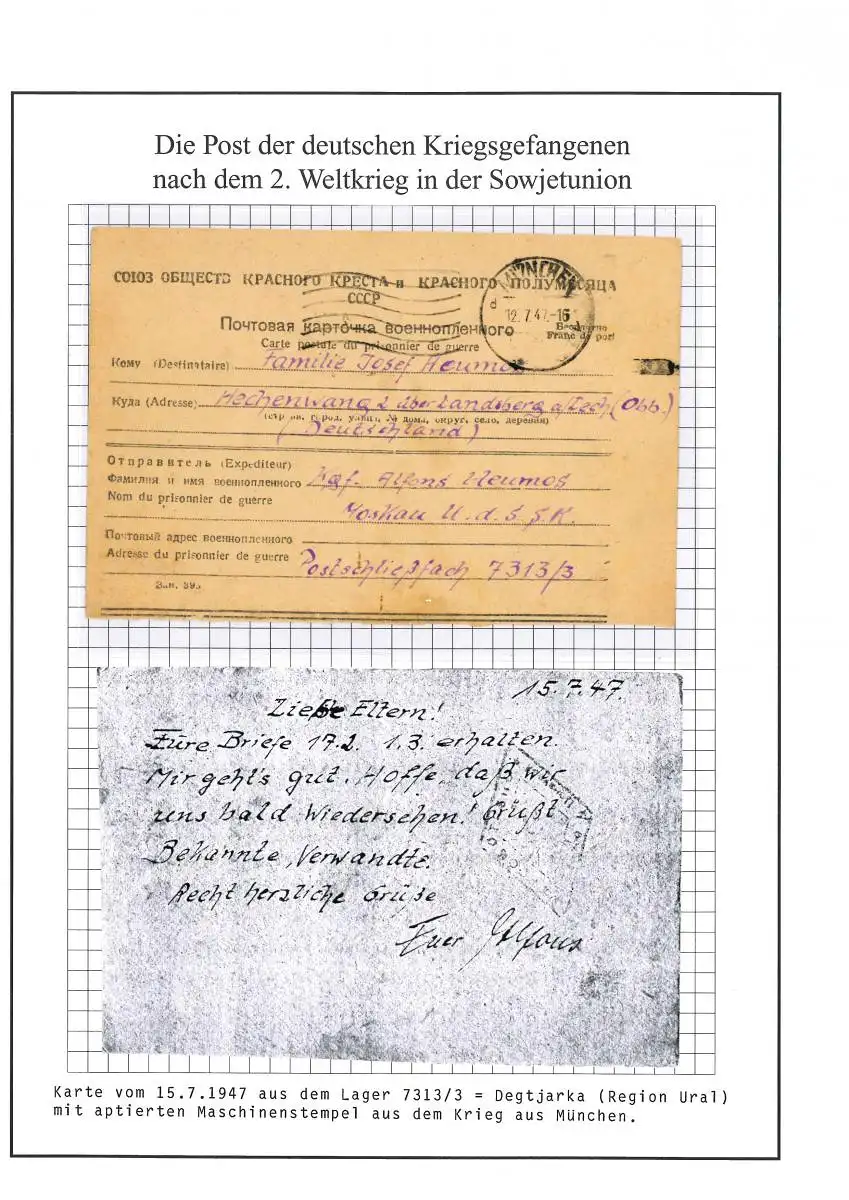 Die Post der deutschen Kriegsgefangenen
nach dem 2. Weltkrieg in der Sowjetunion
СОЮЗ ОБЩЕСТВ КРАСНОГО КРЕСТА и КРАСНОГО ПОЛУМЕСЯЦА
СССР
MÜNCHEN
d
12.7.47.-16
Почтовая карточка военнопленного
Carte postale du prisonnier de guerre
Бесплатно
Franc de port
Кому (Destinataire) Familie Josef Heumos
Куда (Adresse) Hechenwang über Landsberg a/Lech (Obb.)
(страна, город, улица, № дома, округ, село, деревня)
(Deutschland)
Отправитель (Expéditeur)
Фамилия и имя военнопленного Kgf. Alfons Heumos
Nom du prisonnier de guerre
Moskau U.d.S.S.R.
Почтовый адрес военнопленного
Adresse du prisonnier de guerre Postschließfach 7313/3
Зак. 395
15.7.47.
Liebe Eltern!
Eure Briefe 17.2. 1.3. erhalten.
Mir geht's gut. Hoffe, daß wir
uns bald Wiedersehen! Grüßt
Bekannte, Verwandte.
Recht herzliche Grüße
Euer Alfons
Karte vom 15.7.1947 aus dem Lager 7313/3 = Degtjarka (Region Ural)
mit aptierten Maschinenstempel aus dem Krieg aus München.